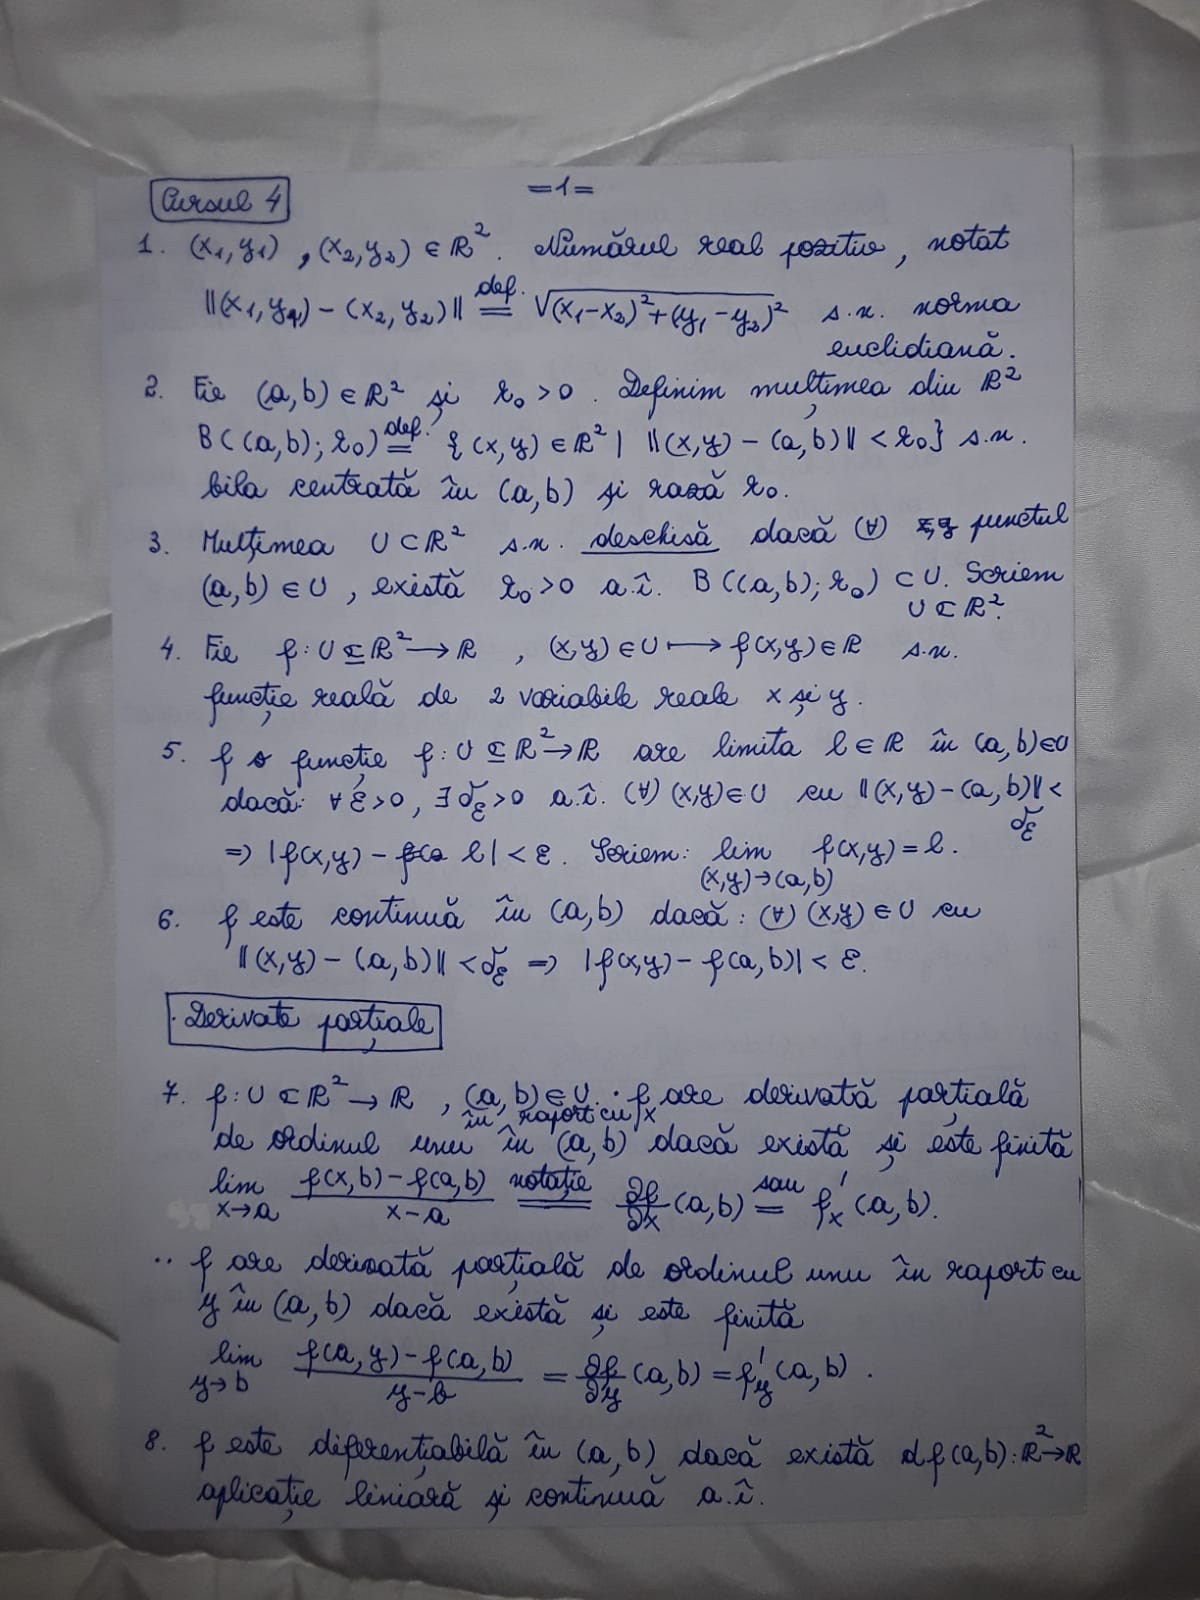 Cursul 4
=1=
1. (x1,y1) , (x2,y2) ∈ ℝ². Numărul real pozitiv, notat
||(x1,y1) – (x2,y2)|| def.= √(x1–x2)²+(y1–y2)² s.n. norma
euclidiană.
2. Fie (a,b) ∈ ℝ² și r0 > 0. Definim mulțimea din ℝ²
B((a,b); r0) def.= {(x,y) ∈ ℝ² | ||(x,y) – (a,b)|| < r0} s.n.
bila centrată în (a,b) și rază r0.
3. Mulțimea U ⊂ ℝ² s.n. deschisă dacă (∀) punctul
(a,b) ∈ U, există r0 > 0 a.î. B((a,b); r0) ⊂ U. Scriem
U ⊂ ℝ².
4. Fie f: U ⊆ ℝ² → ℝ , (x,y) ∈ U ⟼ f(x,y) ∈ ℝ s.n.
funcție reală de 2 variabile reale x și y.
5. f o funcție f: U ⊆ ℝ² → ℝ are limita l ∈ ℝ în (a,b) ∈ U
dacă: ∀ ε > 0, ∃ δε > 0 a.î. (∀) (x,y) ∈ U cu ||(x,y) – (a,b)|| <
δε
⇒ |f(x,y) – l| < ε. Scriem: lim f(x,y) = l.
(x,y)→(a,b)
6. f este continuă în (a,b) dacă: (∀) (x,y) ∈ U cu
||(x,y) – (a,b)|| < δε ⇒ |f(x,y) – f(a,b)| < ε.
Derivate parțiale
7. f: U ⊂ ℝ² → ℝ , (a,b) ∈ U. · f are derivată parțială
în raport cu x
de ordinul unu în (a,b) dacă există și este finită
lim x→a f(x,b) – f(a,b) / x – a notație = ∂f/∂x (a,b) sau = f'x (a,b).
·· f are derivată parțială de ordinul unu în raport cu
y în (a,b) dacă există și este finită
lim y→b f(a,y) – f(a,b) / y – b = ∂f/∂y (a,b) = f'y (a,b).
8. f este diferențiabilă în (a,b) dacă există df(a,b): ℝ² → ℝ
aplicație liniară și continuă a.î.